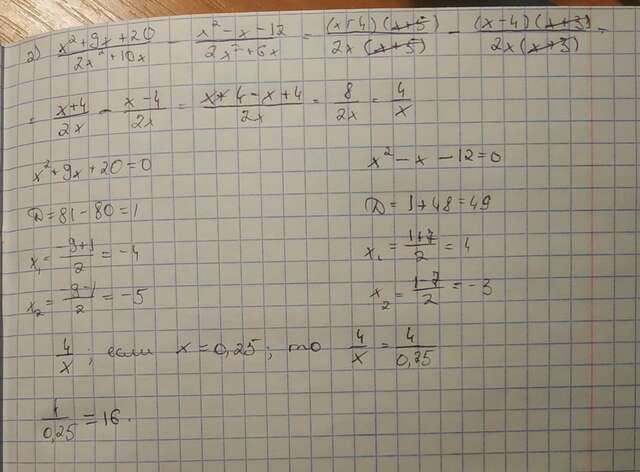 2) (x²+9x+20)/(2x²+10x) - (x²-x-12)/(2x²+6x) = (x+4)(x+5)/2x(x+5) - (x-4)(x+3)/2x(x+3) =
= (x+4)/2x - (x-4)/2x = (x+4-x+4)/2x = 8/2x = 4/x
x²+9x+20=0 x²-x-12=0
D=81-80=1 D=1+48=49
x₁=(-9+1)/2=-4 x₁=(1+7)/2=4
x₂=(-9-1)/2=-5 x₂=(1-7)/2=-3
4/x; если x=0,25; то 4/x=4/0,25
4/0,25=16.